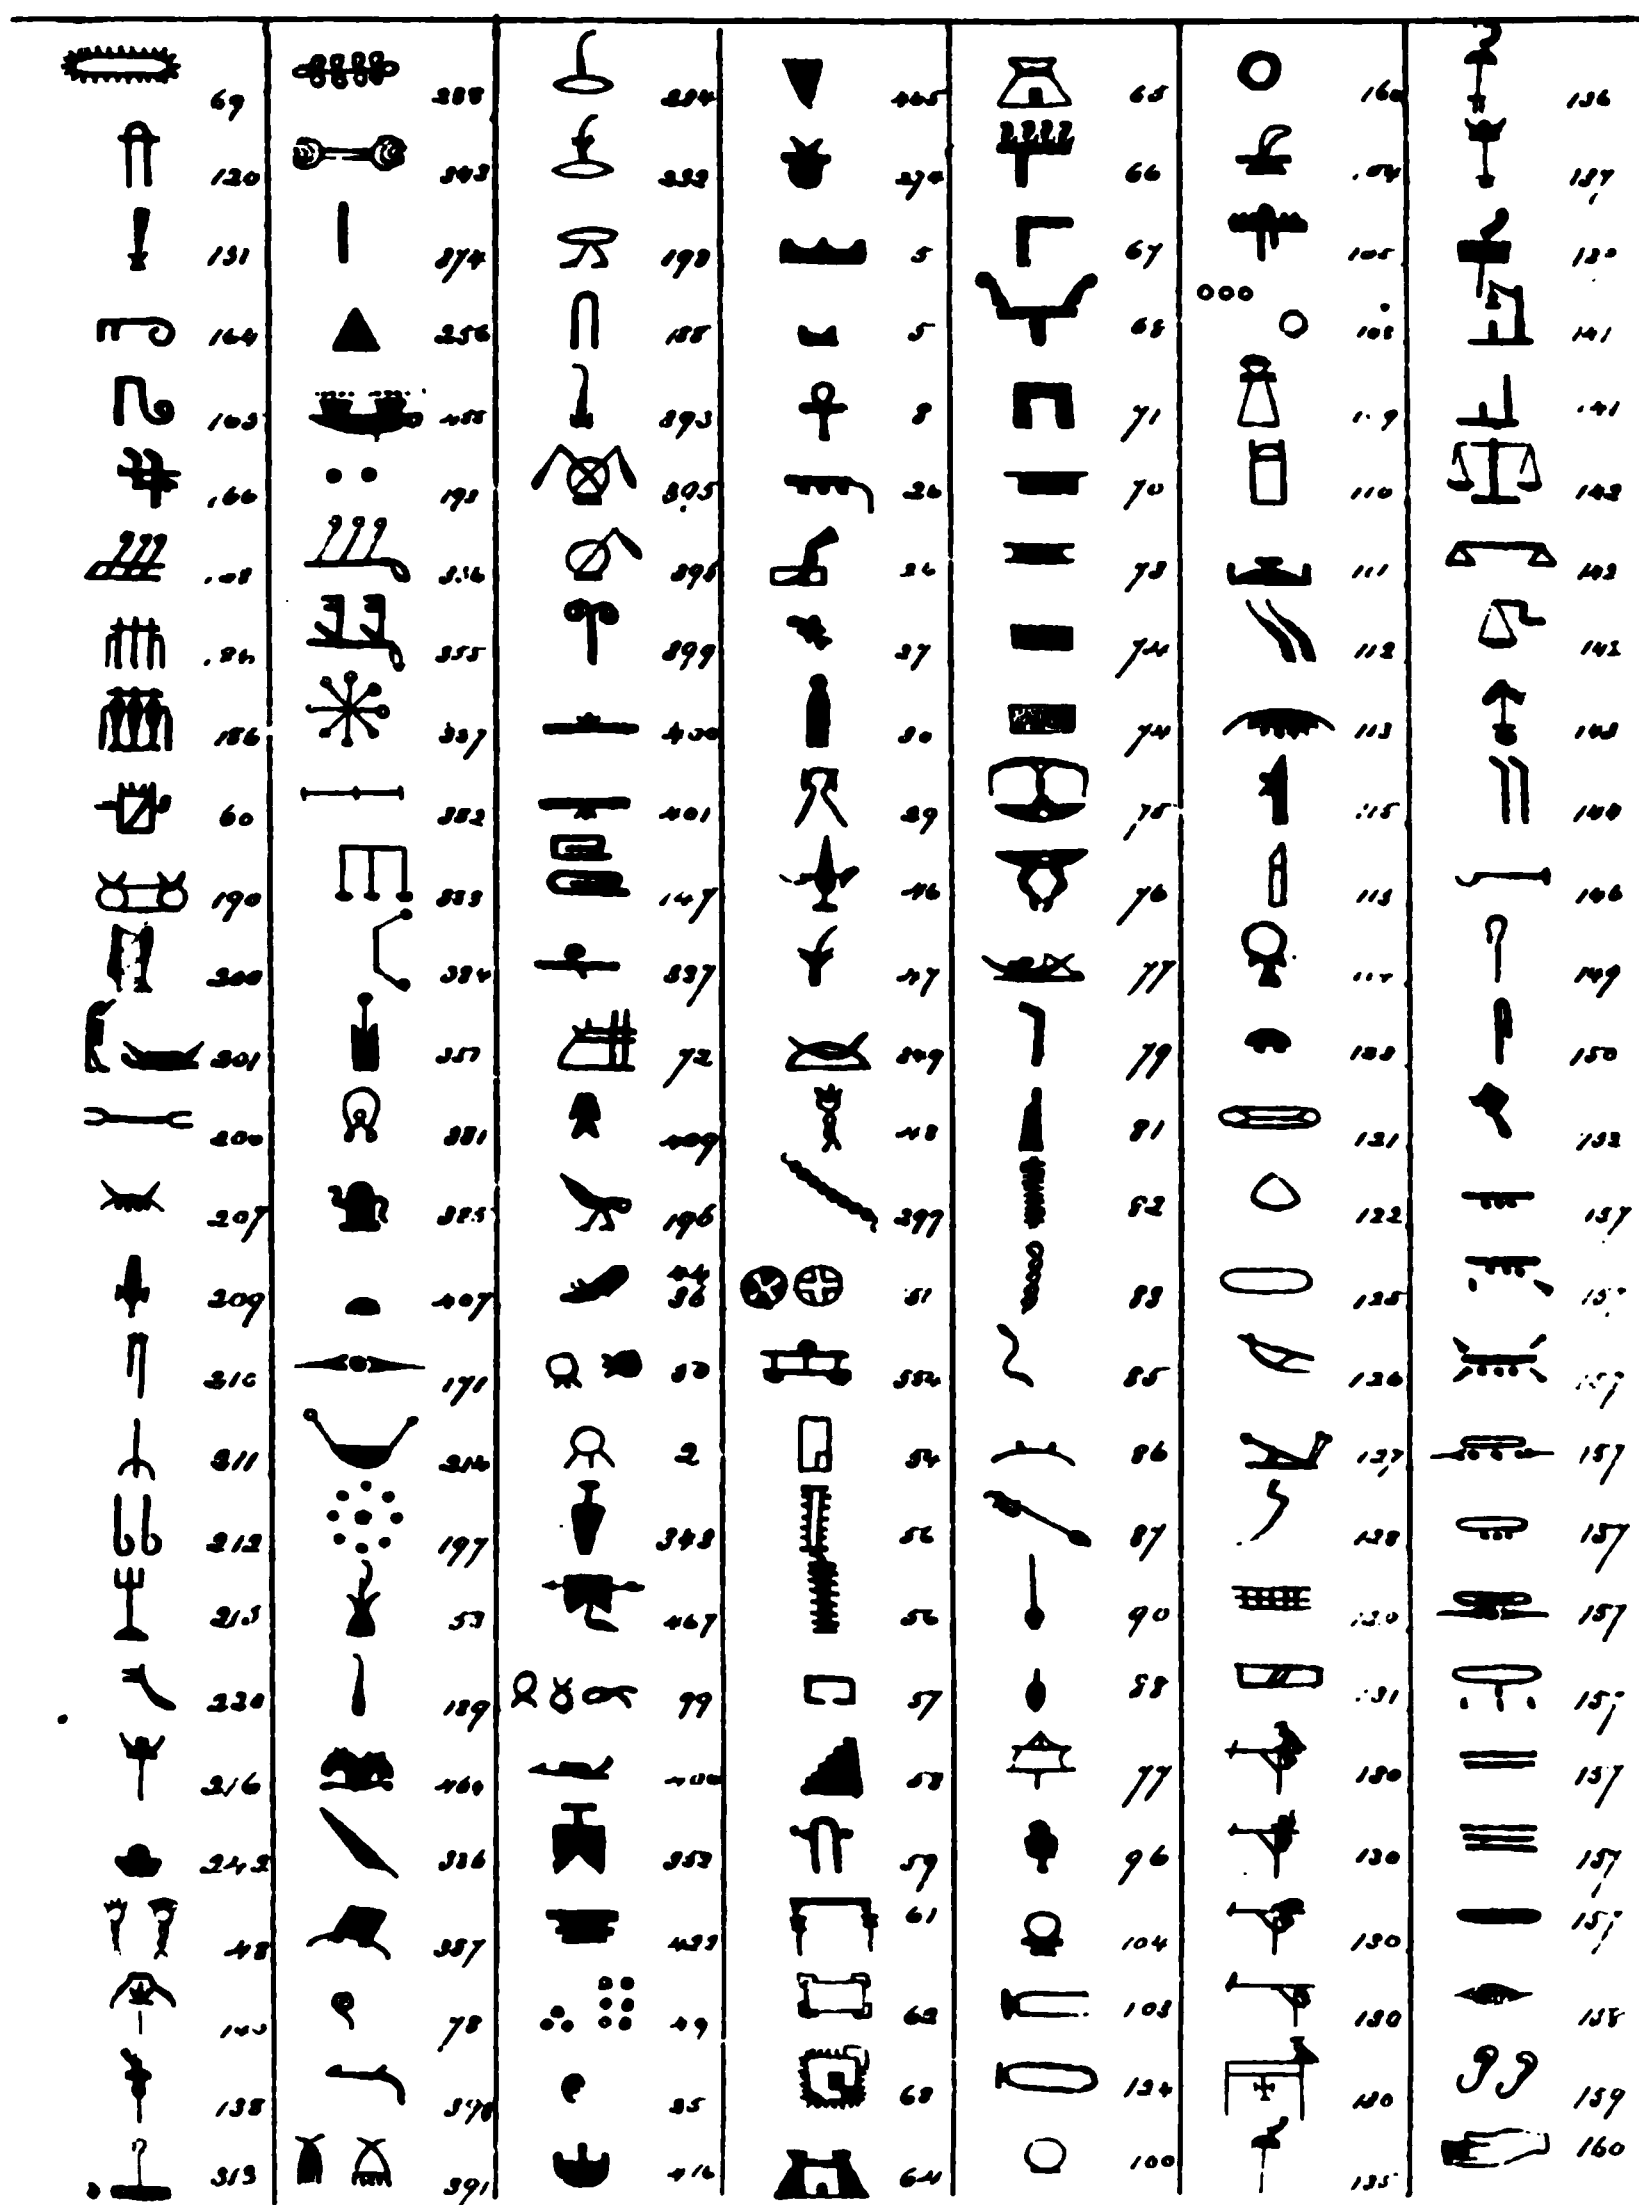 69
120
131
164
165
166
108
186
60
190
200
201
204
207
209
210
211
212
213
220
216
242
48
138
313
288
343
374
256
455
193
356
355
357
382
383
384
357
381
385
407
171
214
197
53
189
464
336
337
78
398
391
234
232
198
188
393
395
395
399
400
401
147
337
72
409
196
44
36
50
2
343
467
99
400
352
423
49
35
416
465
274
5
5
8
26
26
27
30
29
46
47
349
48
299
51
352
54
56
56
57
58
59
61
62
63
64
65
66
67
68
71
70
73
74
74
75
76
77
79
81
82
83
85
86
87
90
88
77
96
104
103
124
100
160
104
105
108
109
110
111
112
113
115
115
123
121
122
125
126
127
128
130
131
130
130
130
130
130
135
136
137
130
141
141
142
142
142
143
144
146
149
150
152
157
157
157
157
157
157
157
157
157
157
158
159
160